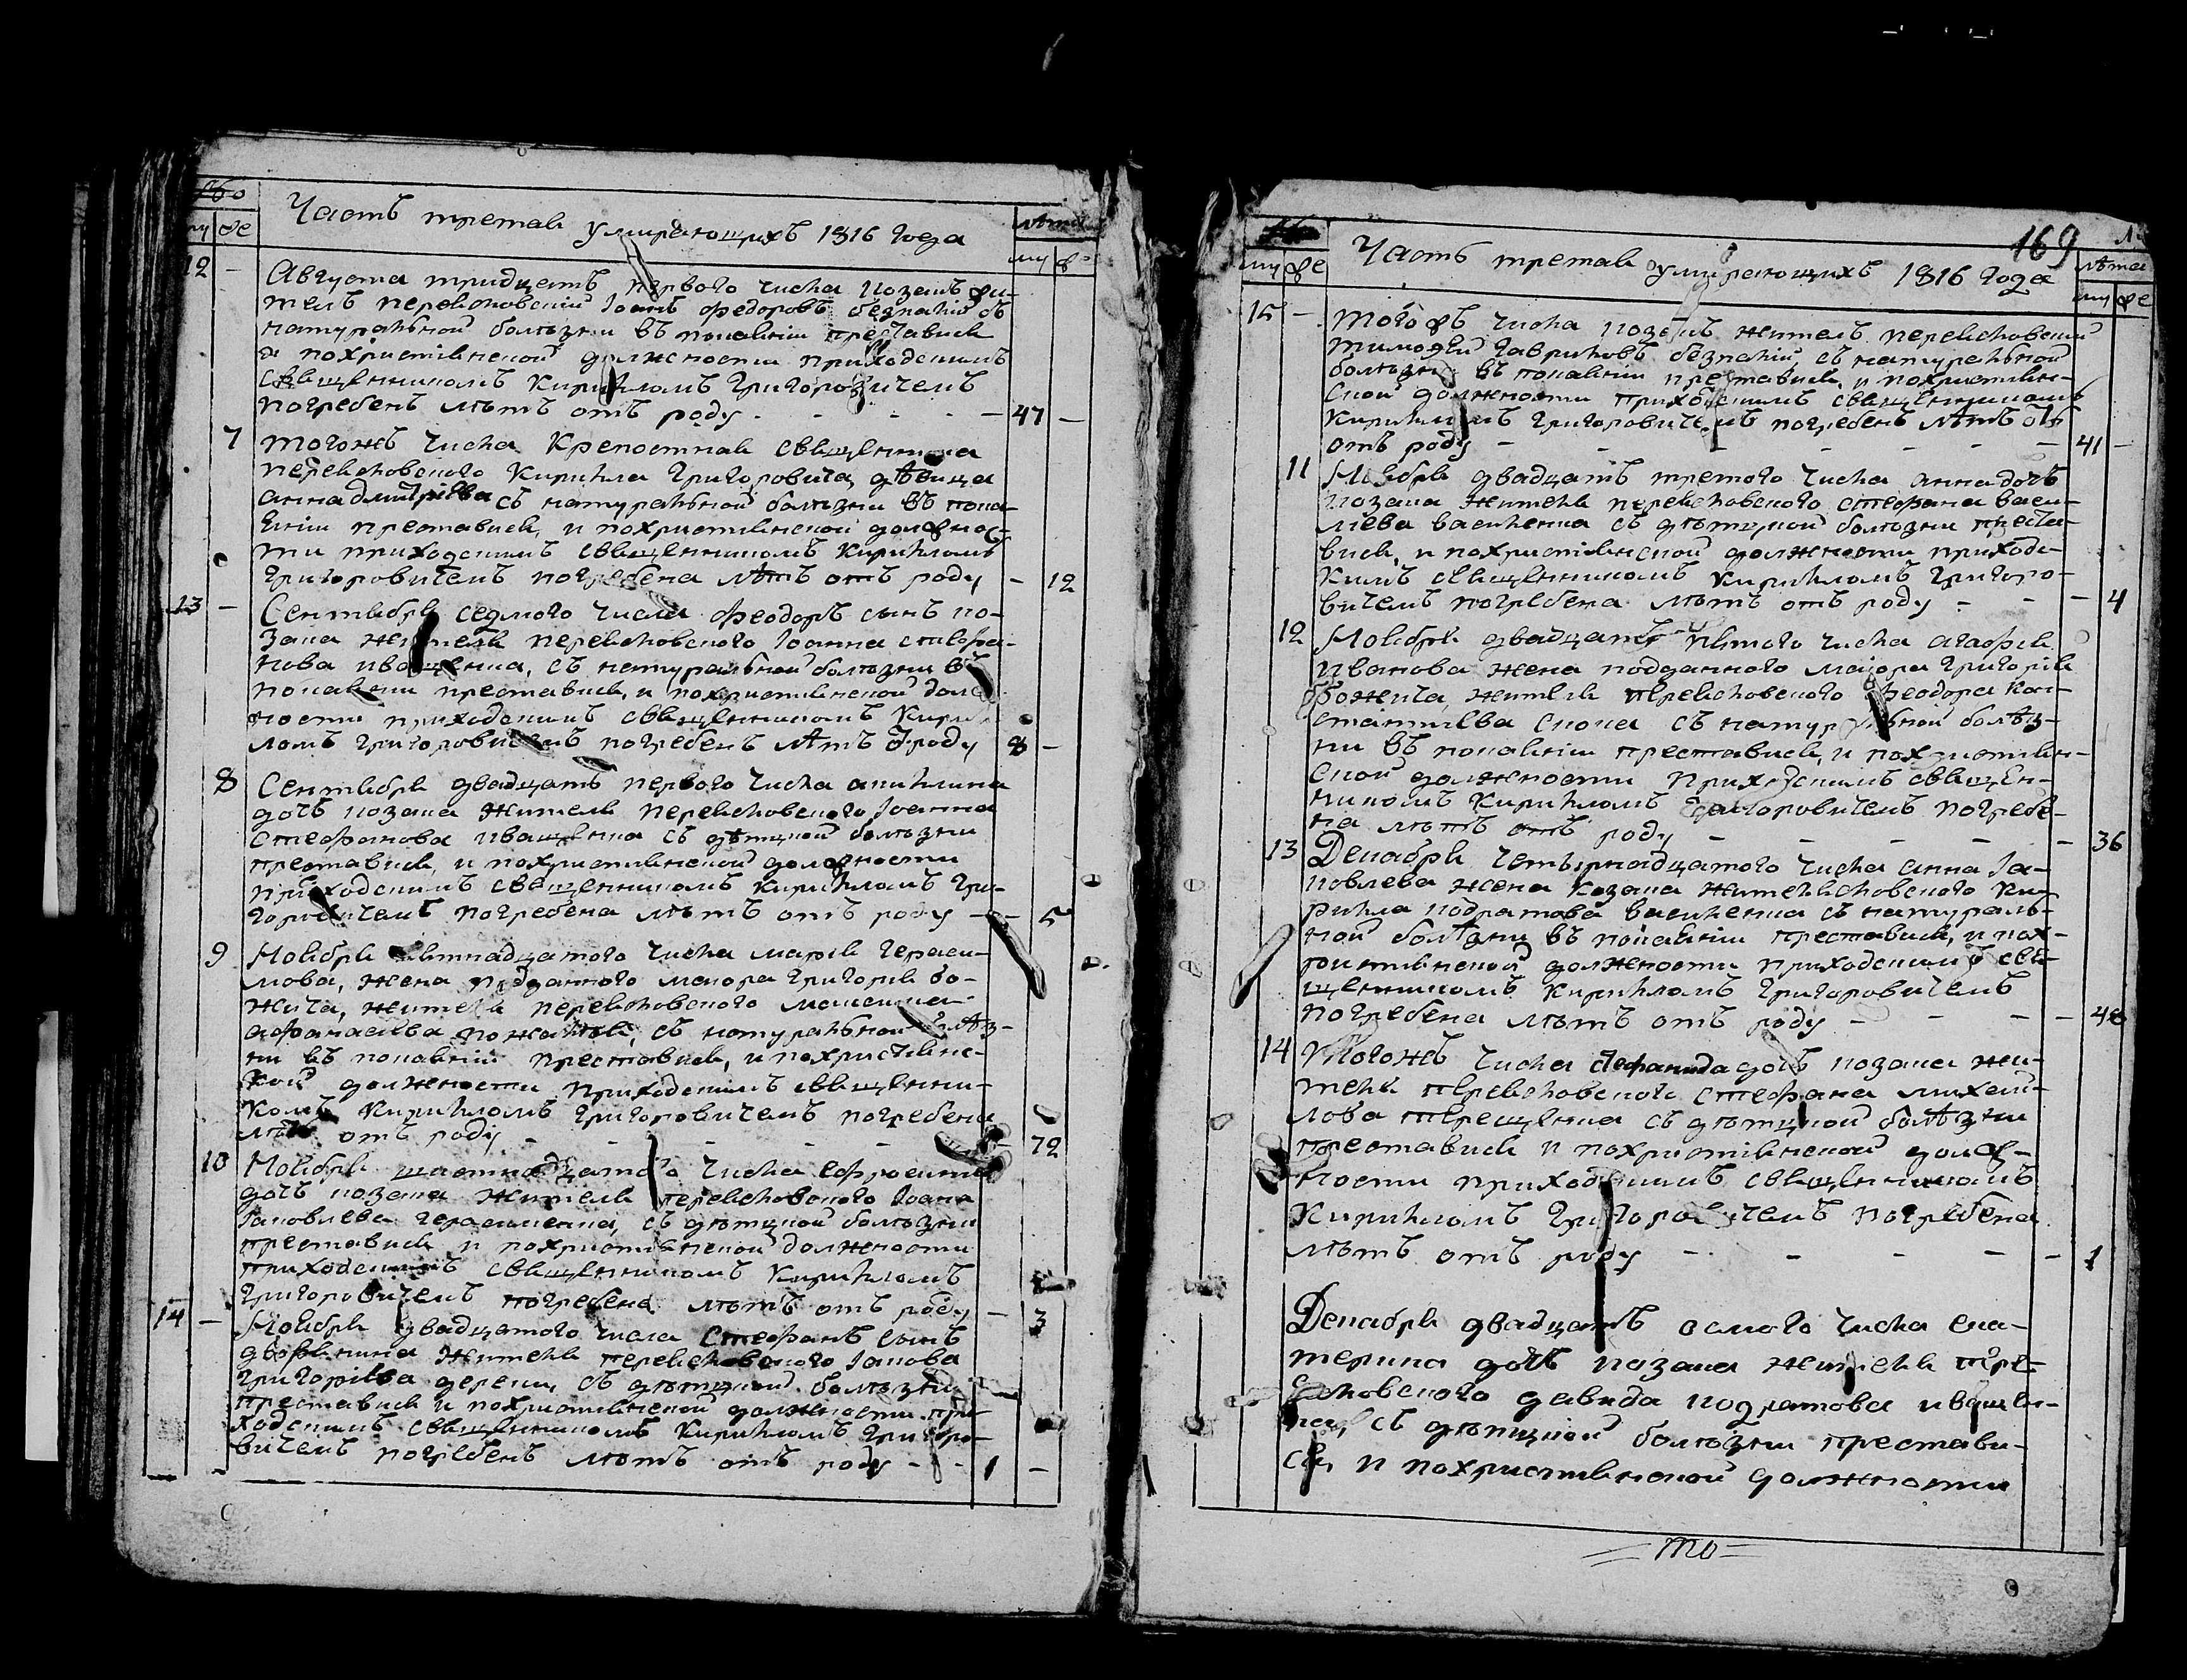 Часть третая умирающихъ 1816 года
лѣта
му же
му же
12 - Августа тридцать первого числа козакъ жи-
тель перевсковский Іоаннъ Федоровъ съ
натуральной болѣзни въ покаянии преставися
и похристиянской должности приходскимъ
священникомъ Кирилломъ Григоровичемъ
погребенъ лѣтъ отъ роду - 47 -
7 тогожъ числа крепостная священника
Кирилла Григоровича девица
анна дмитриева съ натуральной болѣзни въ пока-
янии преставися, и похристиянской должнос-
ти приходскимъ священникомъ Кирилломъ
Григоровичемъ погребена лѣтъ отъ роду - 12
13 - Сентября седмого числа Феодоръ сынъ ко-
зака жителя Іоанна стефа-
нова иващенка, съ натуральной болѣзни въ
покаянии преставися, и похристиянской долж
ности приходскимъ священникомъ Кирил
ломъ Григоровичемъ погребенъ лѣтъ отроду 8 -
8 Сентября двадцать первого числа акилина
дочь козака жителя Іоанна
Стефанова иващенка съ дѣтцкой болѣзни
преставися, и похристиянской должности
приходскимъ священникомъ Кирилломъ Гри-
горовичемъ погребена лѣтъ отъ роду - 5
9 Ноября пятнадцатого числа мария гераси-
мова, жена подданного маиора Григория бо-
жича, жителя максима
афанасиева съ натуральной болѣз-
ни въ покаянии преставися, и похристиянс-
кой должности приходскимъ священни-
комъ Кирилломъ Григоровичемъ погребена
лѣтъ отъ роду - 72
10 Ноября шастнадцатого числа ефросиния
дочь козака жителя Іоана
Іаковлева герасименка, съ дѣтцкой болѣзни
преставися и похристиянской должности
приходскимъ священникомъ Кирилломъ
Григоровичемъ погребена лѣтъ отъ роду - 3
14 - Ноября двадцатого числа Стефанъ сынъ
дворянина жителя Іакова
григориева дереки, съ дѣтцкой болѣзни
преставися и похристиянской должности при
ходскимъ священникомъ Кирилломъ Григоро-
вичемъ погребенъ лѣтъ отъ роду - 1 -
169
Часть третая умирающихъ 1816 года
лѣта
му же
му же
15 - Того жъ числа козакъ житель
тимофей Гавриловъ съ натуральной
болѣзни въ покаянии преставися, и похристиян-
ской должности приходскимъ священникомъ
Кирилломъ Григоровичемъ погребенъ лѣтъ
отъ роду - 41 -
11 Ноября двадцать третого числа анна дочь
козака жителя стефана васи-
лиева василенка съ дѣтцкой болѣзни преста-
вися, и похристиянской должности приходс-
кимъ священникомъ Кирилломъ Григоро-
вичемъ погребена лѣтъ отъ роду - 4
12 Ноября двадцать пятого числа агафия
иванова жена подданного маиора Григория
Божича, жителя Феодора кон-
стантиева съ натуральной болѣз-
ни въ покаянии преставися, и похристиян-
ской должности приходскимъ священ-
никомъ Кирилломъ Григоровичемъ погребе-
на лѣтъ отъ роду - 36
13 Декабря четырнадцатого числа анна Іа-
ковлева жена козака Ки-
рилла кодратова василенка съ натураль-
ной болѣзни въ покаянии преставися, и пох-
ристиянской должности приходскимъ свя-
щенникомъ Кирилломъ Григоровичемъ
погребена лѣтъ отъ роду -
14 Тогожъ числа дочь козака жи-
теля стефана михаи-
лова терещенка съ дѣтцкой болѣзни
преставися и похристиянской долж-
ности приходскимъ священникомъ
Кирилломъ Григоровичемъ погребена
лѣтъ отъ роду - 1
Декабря двадцать осмого числа ека-
терина дочь козака жителя пере-
давида кодратова иващен-
ка, съ дѣтцкой болѣзни престави-
ся, и похристиянской должности
= то =